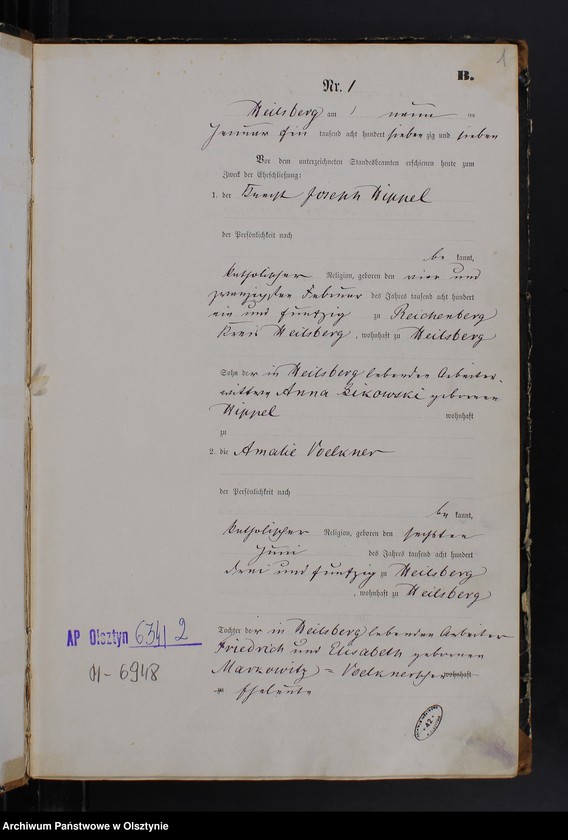 1
B.
Nr. 1
Heilsberg am neun ten
Januar Ein tausend acht hundert sieben zig und sieben
Vor dem unterzeichneten Standesbeamten erschienen heute zum
Zweck der Eheschließung:
1. der Knecht Joseph Hippel
der Persönlichkeit nach
be kannt,
katholischer Religion, geboren den vier und
zwanzigsten Februar des Jahres tausend acht hundert
ein und funfzig zu Reichenberg
Kreis Heilsberg, wohnhaft zu Heilsberg
Sohn der in Heilsberg lebenden Arbeiter-
wittwe Anna Zikowski geborenen
Hippel wohnhaft
zu
2. die Amalie Voelkner
der Persönlichkeit nach
be kannt,
katholischer Religion, geboren den sechsten
Juni des Jahres tausend acht hundert
drei und funfzig zu Heilsberg
, wohnhaft zu Heilsberg
Tochter der in Heilsberg lebenden Arbeiter
Friedrich und Elisabeth geborenen
Markowitz = Voelknerschen wohnhaft
Eheleute
AP Olsztyn 634/2
M-6948
42
Archiwum Państwowe w Olsztynie